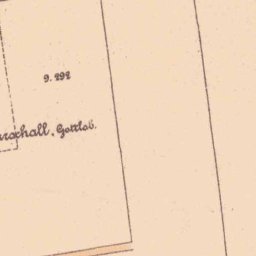 9. 292
arschall, Gottlob.